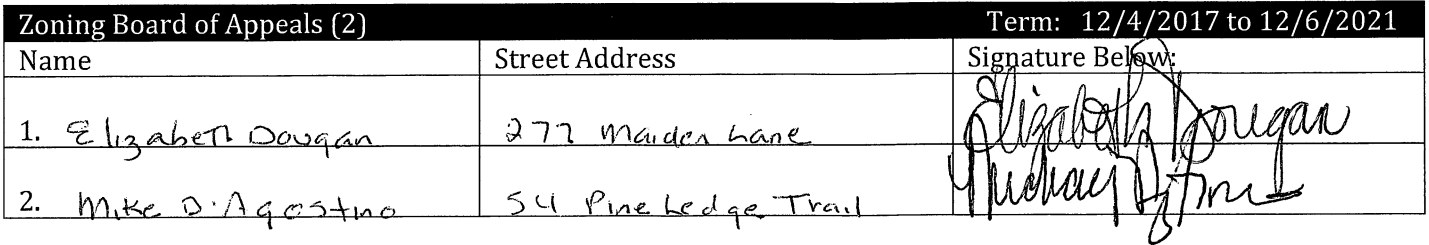 Zoning Board of Appeals (2) Term: 12/4/2017 to 12/6/2021
Name Street Address Signature Below:
1. Elizabeth Dougan 277 Maiden Lane Elizabeth Dougan
2. Mike D'Agostino 54 Pine Ledge Trail